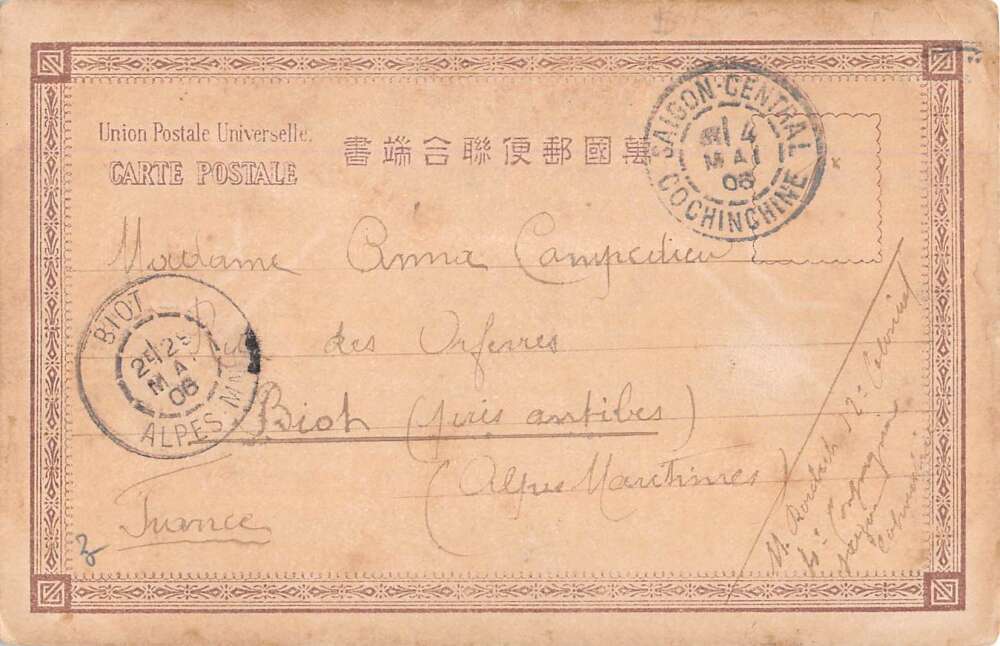 Union Postale Universelle.
CARTE POSTALE
書端合聯便郵國萬
SAIGON-CENTRAL
4
MAI
06
COCHINCHINE
Madame Anna Campedieu
Rue des Orfevres
Biot (près antibes)
(Alpes Maritimes)
France
BIOT
25
MAI
06
ALPES MAR
2e Colonial
Compagnie